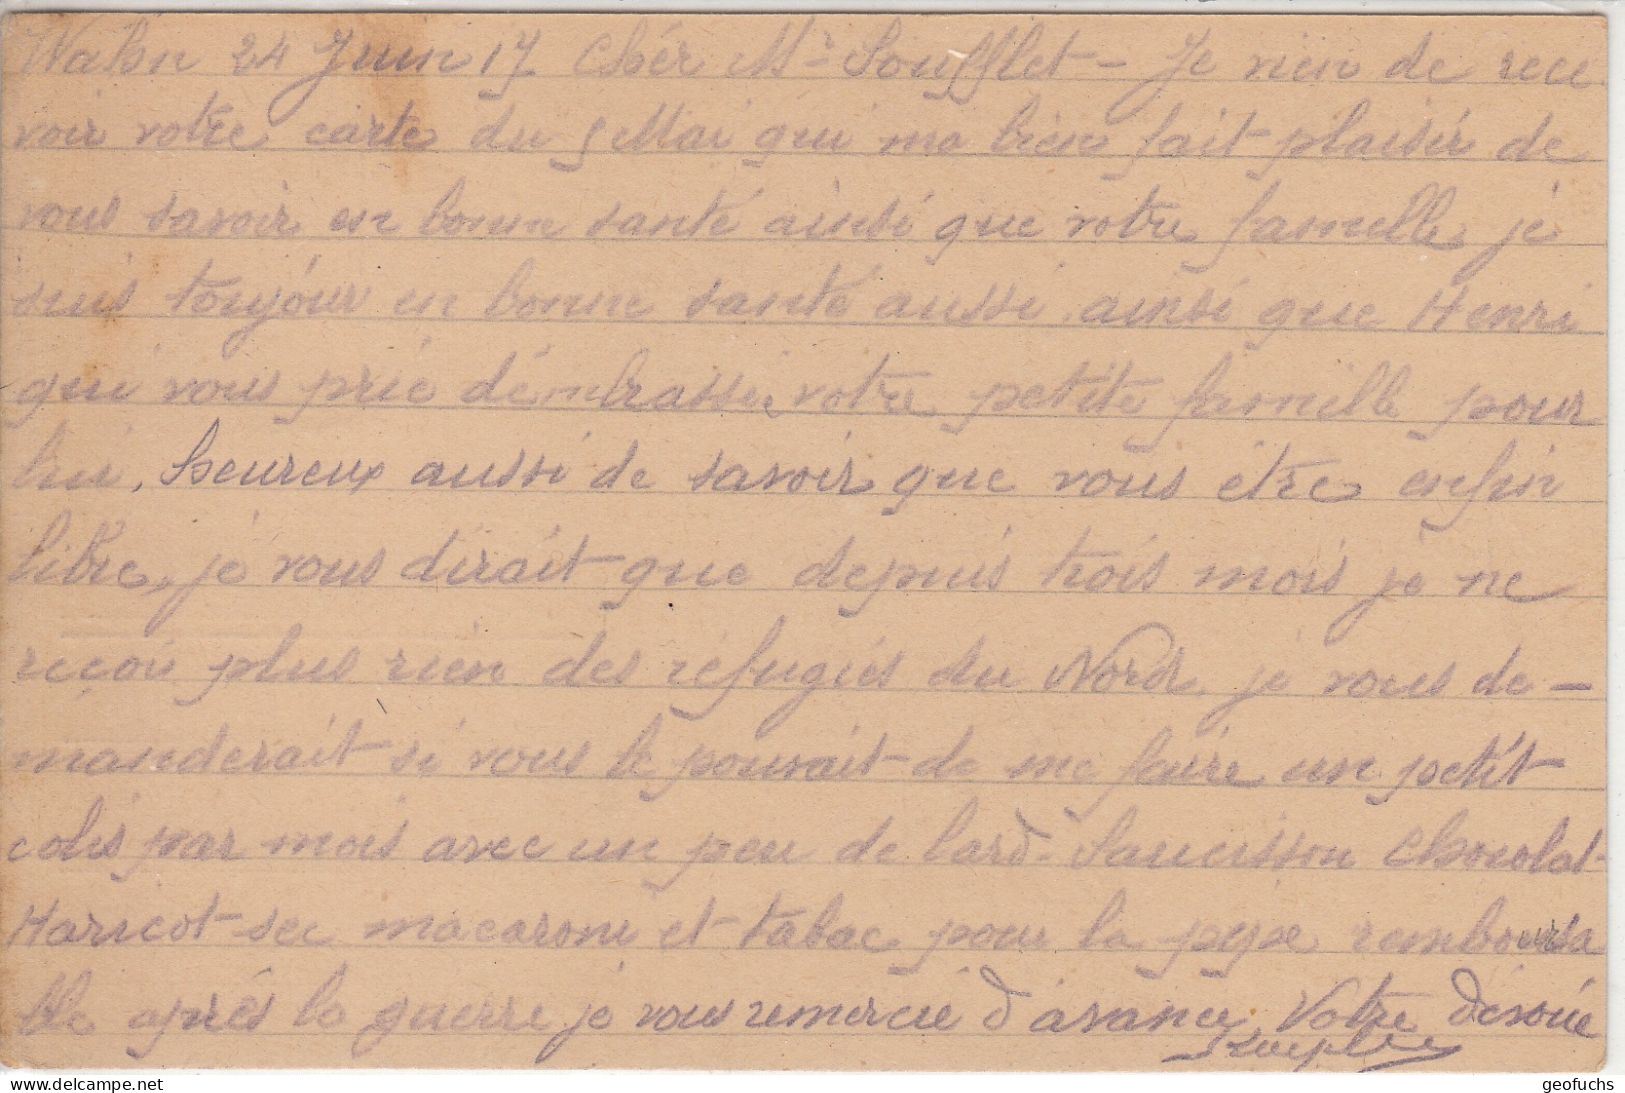 Wahn 24 Juin 17 Chér Mr Soufflet - Je vien de rece
voir votre carte du 5 Mai qui ma bien fait plaisir de
vous savoir en bonne santé ainsi que votre famille, je
suis toujour en bonne santé aussi ainsi que Henri
qui vous prie démbrasser votre petite famille pour
lui, heureux aussi de savoir que vous être enfin
libre, je vous dirait que depuis trois mois je ne
reçoi plus rien des réfugiés du Nord, je vous de-
manderait si vous le pouvait de me faire un petit
colis par mois avec un peu de lard - Saucisson Chocolat -
Haricot sec macaroni et tabac pour la pipe remboursa
ble après la guerre je vous remercie d'avance, Votre dévoué
delcampe.net
geofuchs